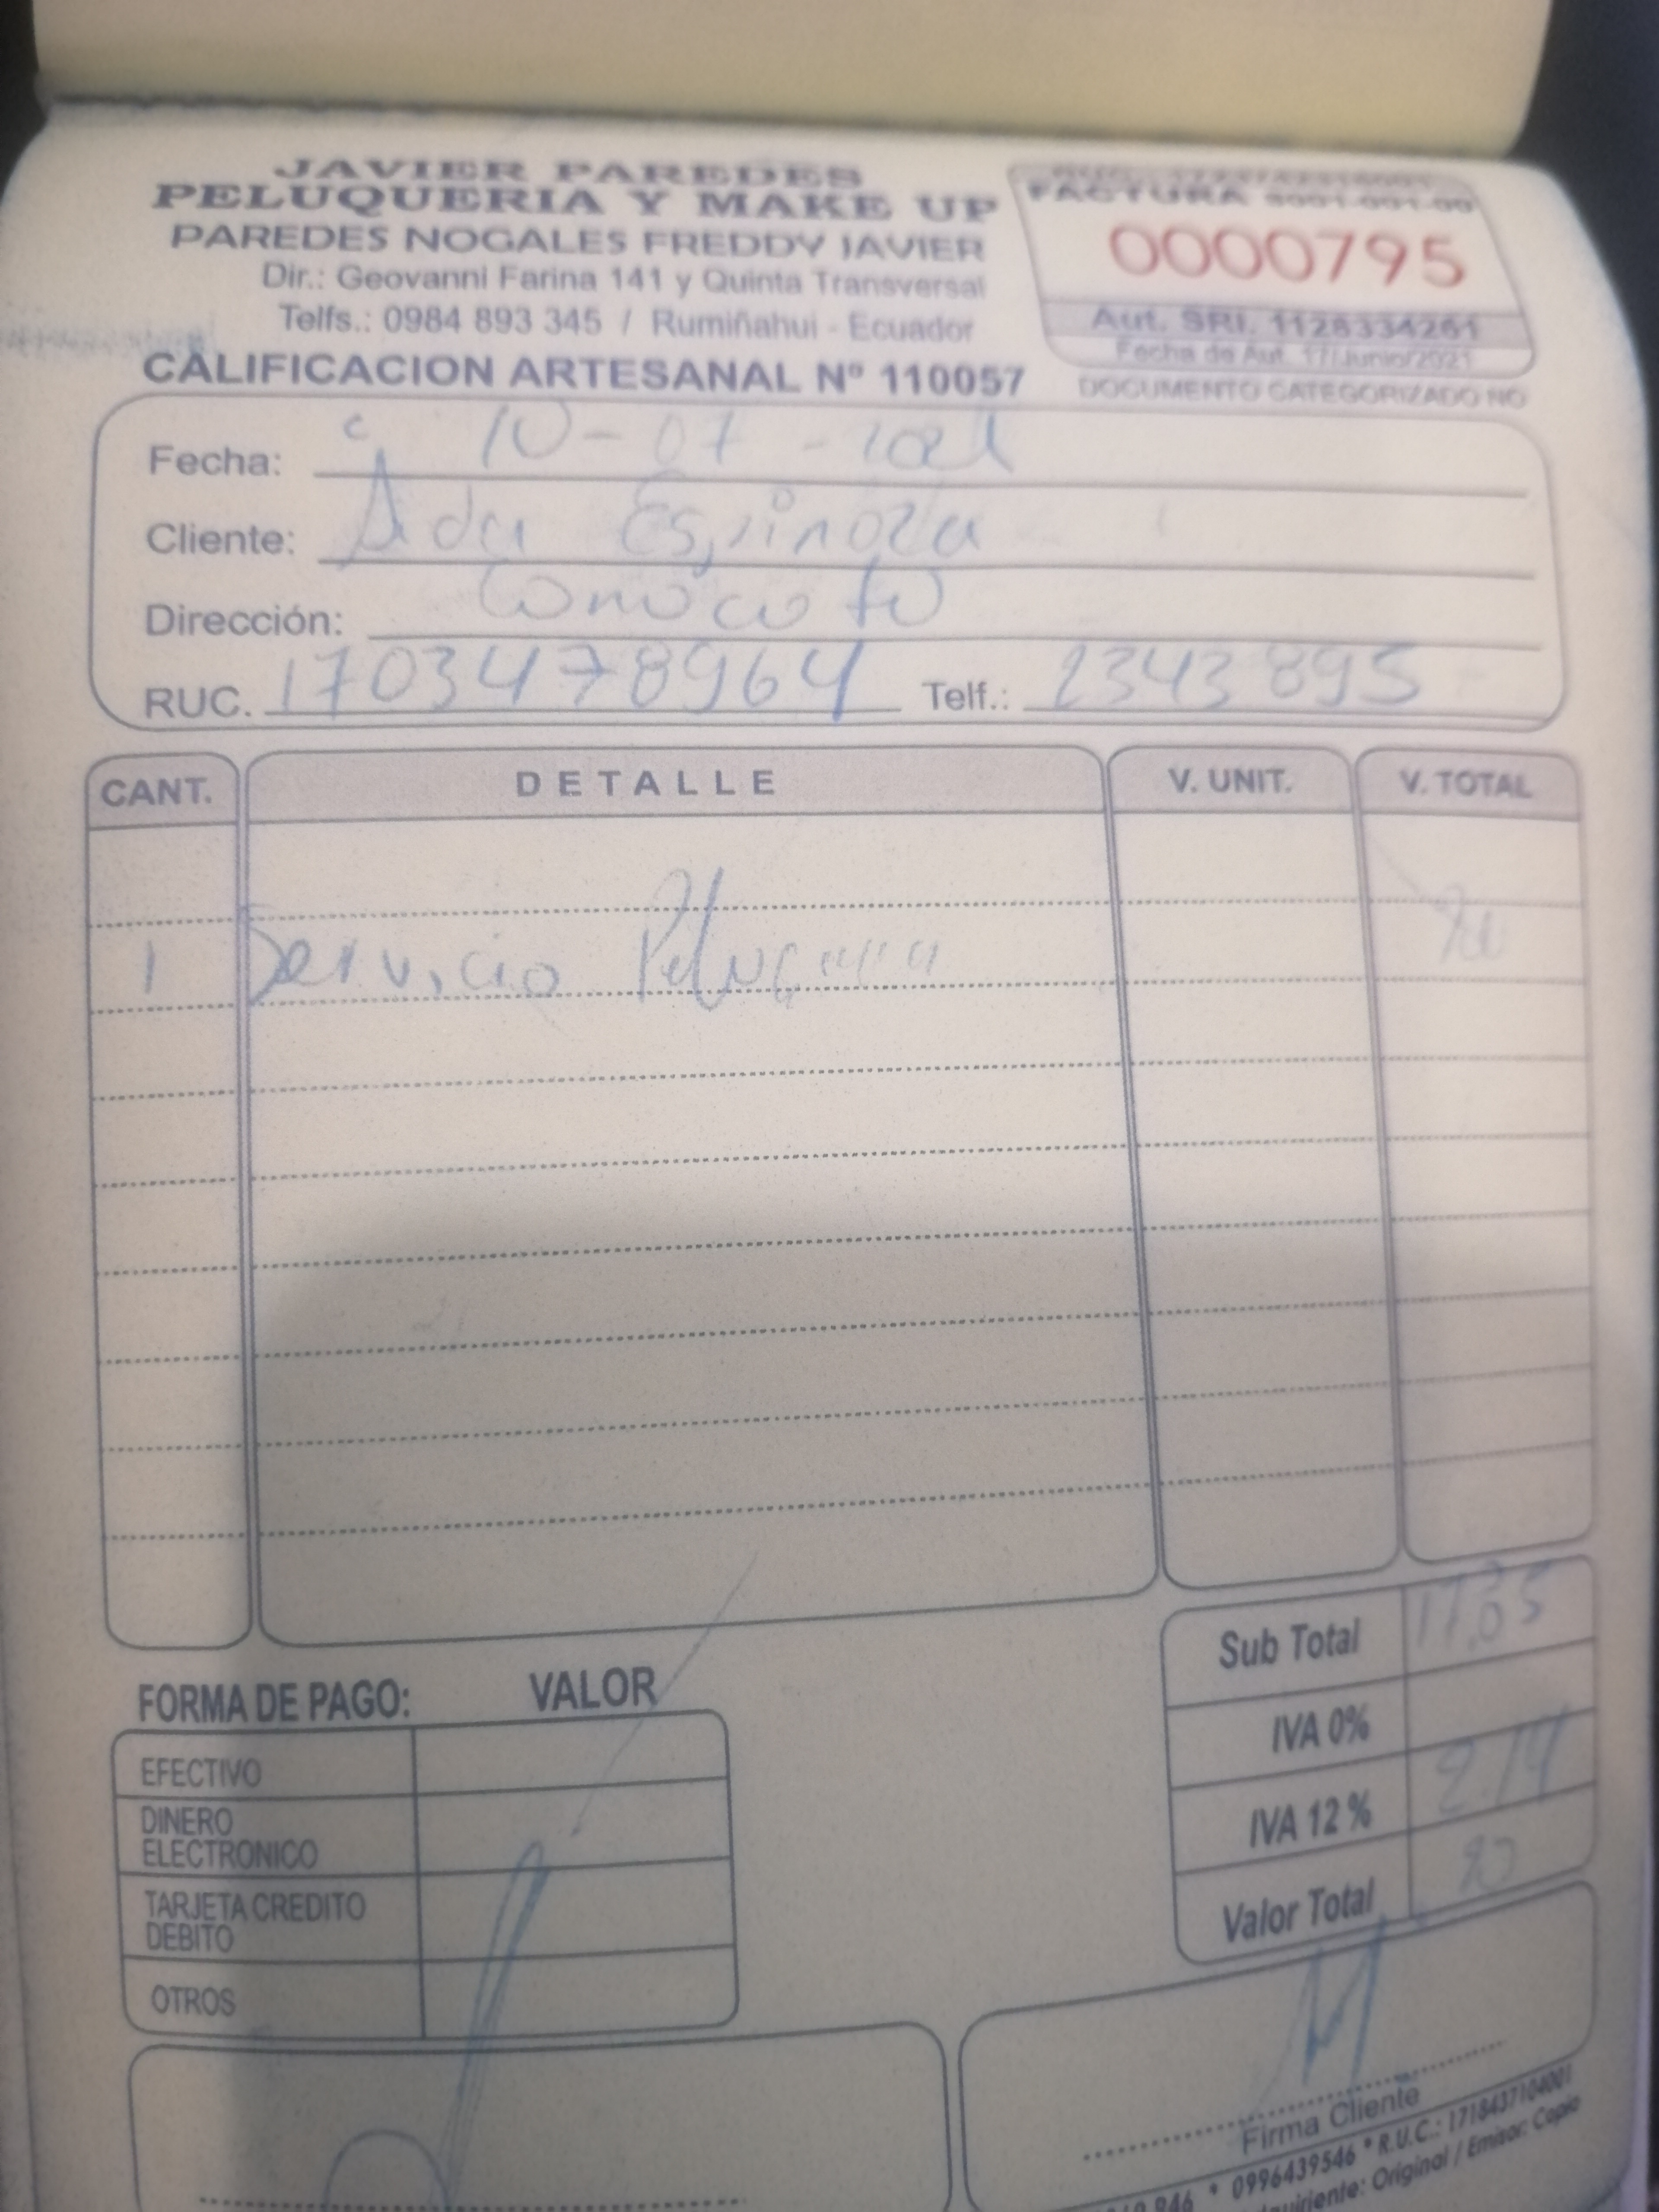 JAVIER PAREDES
PELUQUERIA Y MAKE UP
PAREDES NOGALES FREDDY JAVIER
Dir.: Geovanni Farina 141 y Quinta Transversal
Telfs.: 0984 893 345 / Rumiñahui - Ecuador
CALIFICACION ARTESANAL Nº 110057
FACTURA
0000795
Aut. SRI. 1128334261
Fecha de Aut. 17/Junio/2021
DOCUMENTO CATEGORIZADO NO
Fecha: 10-07-2021
Cliente: Ada Espinoza
Dirección: Conocoto
RUC. 1703478964 Telf.: 2343895
CANT. DETALLE V. UNIT. V. TOTAL
1 Servicio
Sub Total
IVA 0%
IVA 12% 2.14
Valor Total 20
FORMA DE PAGO: VALOR
EFECTIVO
DINERO
ELECTRONICO
TARJETA CREDITO
DEBITO
OTROS
Firma Cliente
946 * 0996439546 * R.U.C.: 1718437104001
Original / Emisor: Copia